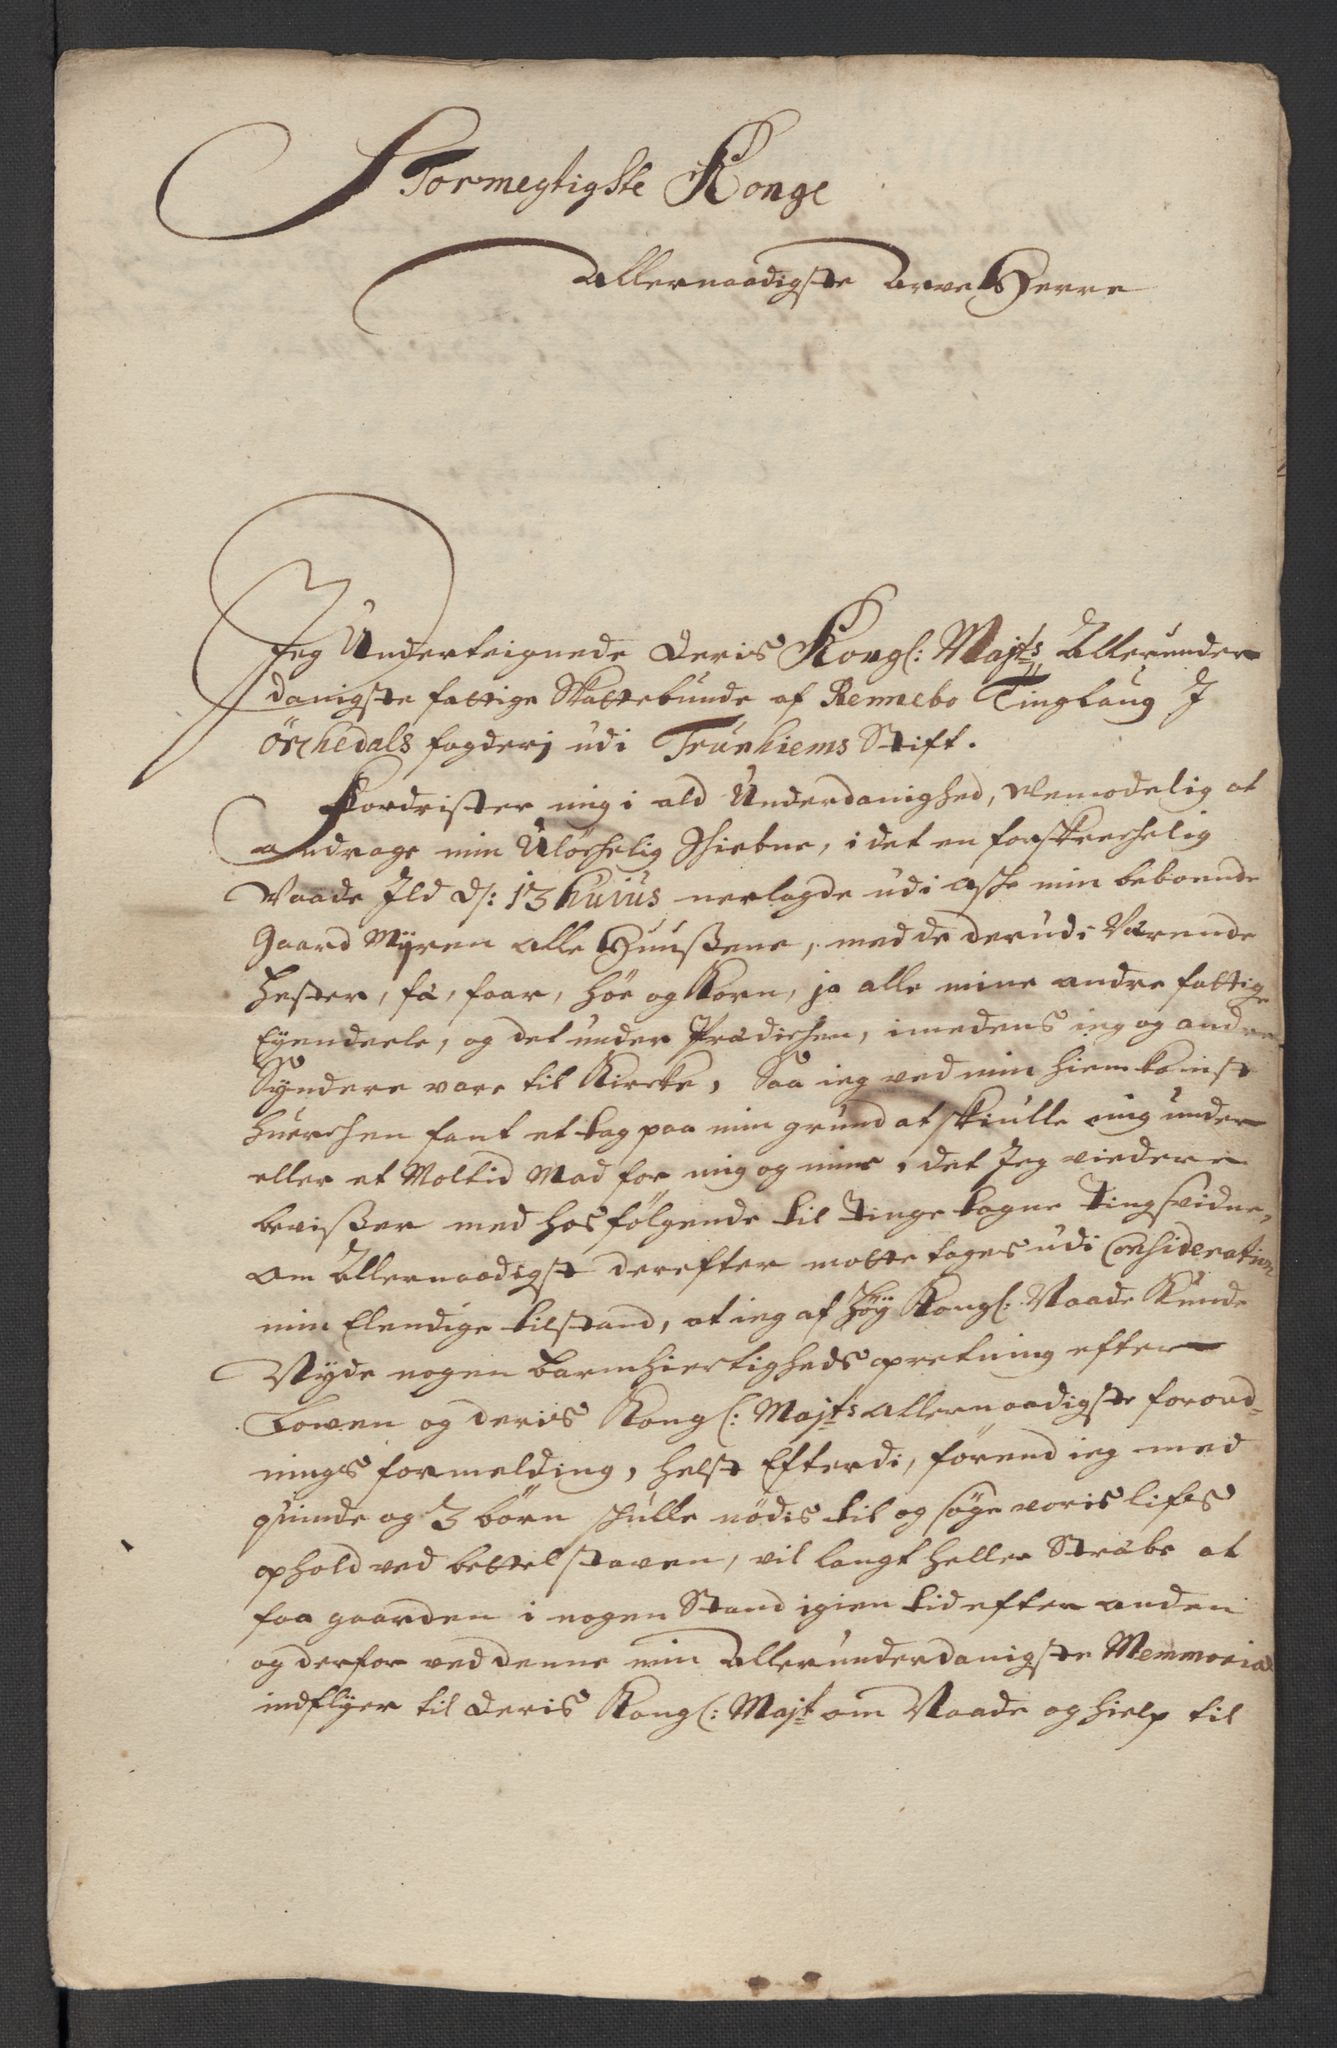 Stormegtigste Konge
Allernaadigste Arve Herre
Jeg Underteignede Deris Kongl: Majts Allerunder
danigste fattige Skattebunde af Rennebo Tinglaug J
örchedals fogderj udi Trünhiems Stift.
Fordrister mig i ald Underdanighed, Wemodelig at
andrage min Ulöchelig Schiebne, i det en forskrechelig
Vaade Jld d: 13 huius nerlagde udi Asche min beboende
Gaard Myren alle Huußene, med de derudi Värende
Hester, fä, faar, höe og Korn, ja alle mine andre fattige
Eyendeele, og det under Prædichen, imedens ieg og andre
Syndere vare til Kircke, Saa ieg ved min hiemkomst
huerchen fant et tag paa min grund at skiulle mig under
eller et Moltid Mad for mig og mine, det Jeg viedere
bevißer med hosfölgende til Tinge tagne Tingsvidne,
om Allernaadigst derefter motte tages udi Consideration
min Elendige tilstand, at ieg af Höy Kongl: Naade Kunde
Nyde nogen barmhiertigheds opretning efter
Lowen og deris Kongl: Majts allernaadigste forord-
nings formelding, helst Efterdi, förend ieg med
quinde og 3 börn schulle nödis til og söge voris lifes
ophold ved bettelstaven, vil langt heller Sträbe at
faa gaarden i nogen Stand igien tid efter anden
og derfor ved denne min Allerunderdanigste Memmorial
indflyer til Deris Kongl: Majt om Naade og hielp til